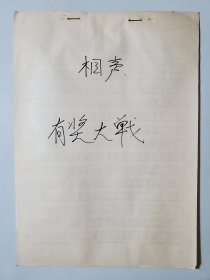 相声
有奖大战